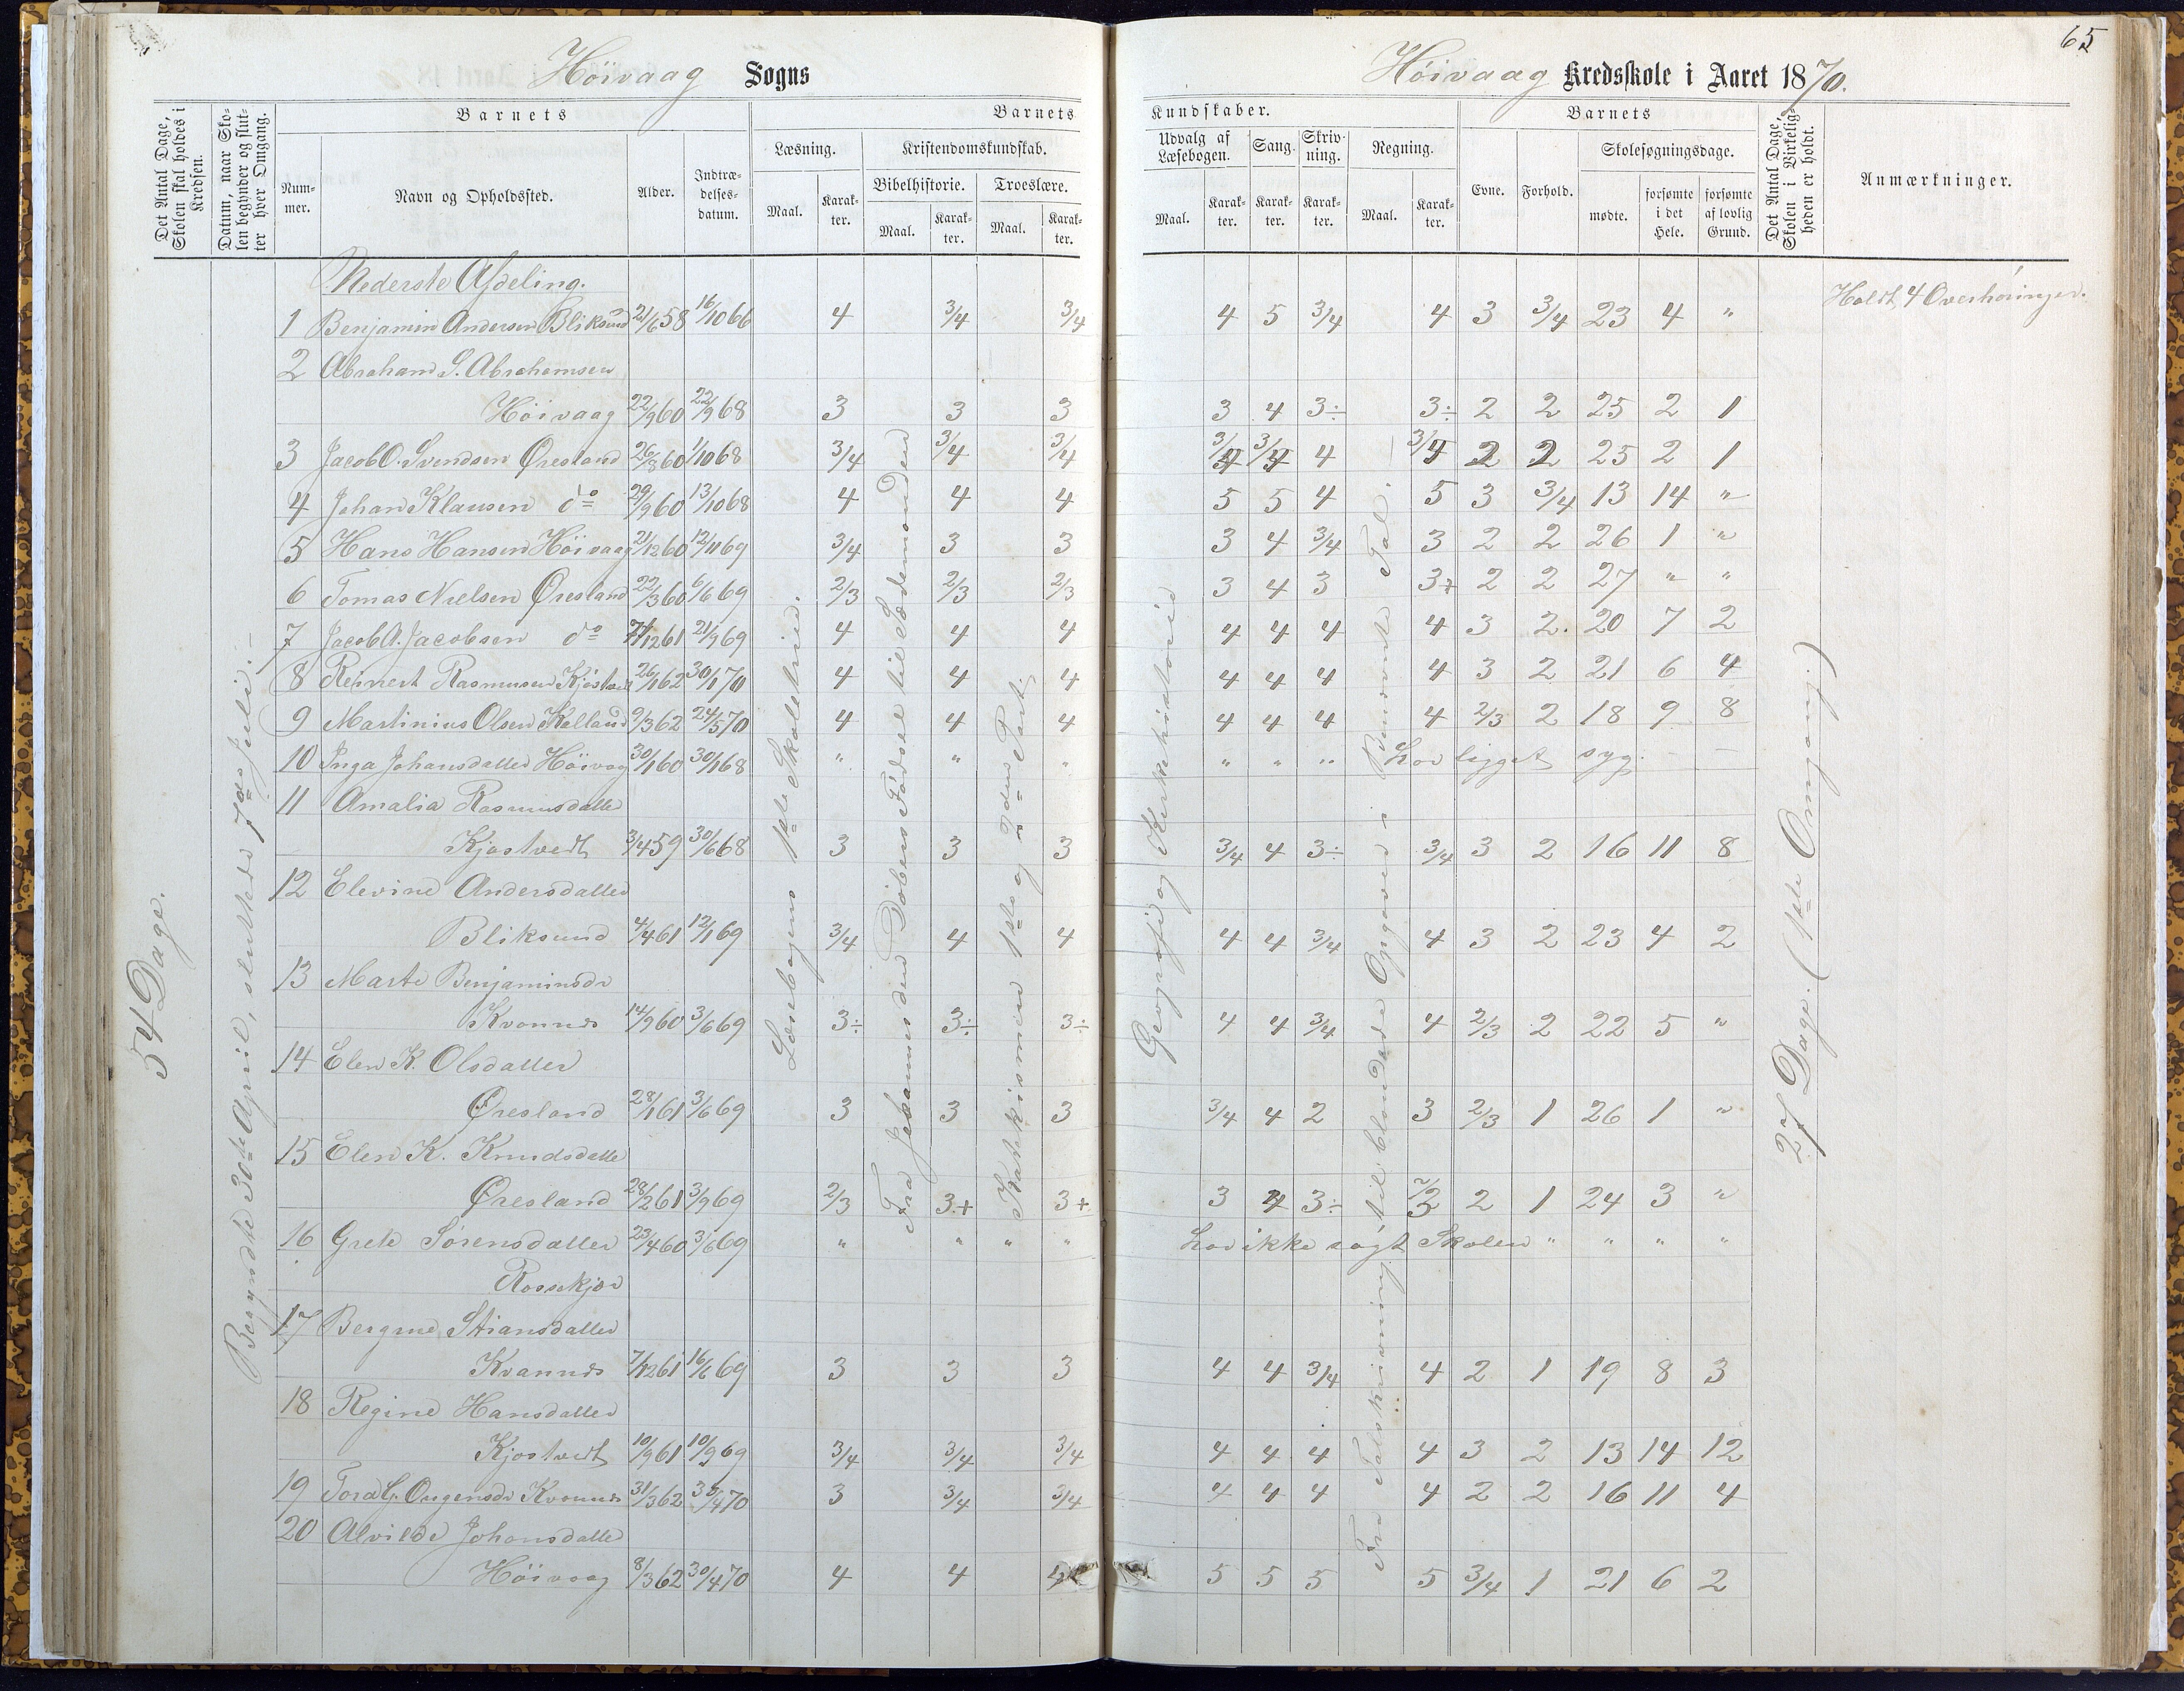 65
Höivaag Sogns
Höivaag Kredsskole i Aaret 1870.
Det Antal Dage, Skolen skal holdes i Kredsen.
Datum, naar Skolen begynder og slutter hver Omgang.
Barnets
Nummer.
Navn og Opholdssted.
Alder.
Indtrædelsesdatum.
Barnets
Læsning.
Maal.
Karakter.
Kristendomskundskab.
Bibelhistorie.
Maal.
Karakter.
Troeslære.
Maal.
Karakter.
Kundskaber.
Udvalg af Læsebogen.
Maal.
Karakter.
Sang.
Karakter.
Skrivning.
Karakter.
Regning.
Maal.
Karakter.
Barnets
Evne.
Forhold.
Skolesøgningsdage.
mødte.
forsømte i det Hele.
forsømte af lovlig Grund.
Det Antal Dage, Skolen i Virkeligheden er holdt.
Anmærkninger.
54 Dage.
Begyndte 30te April, sluttede 7de Juli.
Læsebogens 1ste Skoletrin.
Fra Johannes den Døbers Fødsel til Sædemanden
Katekismen 1ste og 2den Part.
Geografi og Kirkehistorie
Fra Talskrivning til blandede Opgaver i Benævnte Tal.
27 Dage. (1ste Omgang.)
Holdt 4 Overhøringer.
Nederste Afdeling.
1 Benjamin Andersen Bliksund 21/6 58 16/10 66 4 3/4 3/4 4 5 3/4 4 3 3/4 23 4 "
2 Abraham S. Abrahamsen
Höivaag 22/9 60 22/9 68 3 3 3 3 4 3÷ 3÷ 2 2 25 2 1
3 Jacob O. Svendsen Øresland 26/8 60 1/10 68 3/4 3/4 3/4 3/4 3/4 4 3/4 2 2 25 2 1
4 Johan Klausen do 29/9 60 13/10 68 4 4 4 5 5 4 5 3 3/4 13 14 "
5 Hans Hansen Höivaag 21/12 60 12/11 69 3/4 3 3 3 4 3/4 3 2 2 26 1 "
6 Tomas Nielsen Øresland 22/3 60 6/6 69 2/3 2/3 2/3 3 4 3 3+ 2 2 27 " "
7 Jacob A. Jacobsen do 12 61 21/9 69 4 4 4 4 4 4 4 3 2. 20 7 2
8 Reinert Rasmussen Kjöstvedt 26/1 62 30/1 70 4 4 4 4 4 4 4 3 2 21 6 4
9 Martinius Olsen Kalland 9/3 62 24/5 70 4 4 4 4 4 4 4 2/3 2 18 9 8
10 Inga Johansdatter Höivag 30/1 60 30/1 68 " " " " " " har ligget syg.
11 Amalia Rasmusdatter
Kjøstvedt 3/4 59 30/6 68 3 3 3 3/4 4 3÷ 3/4 3 2 16 11 8
12 Elevine Andersdatter
Bliksund 4/4 61 12/1 69 3/4 4 4 4 4 3/4 4 3 2 23 4 2
13 Marte Benjaminsdr
Kvannes 14/9 60 3/6 69 3÷ 3÷ 3÷ 4 4 3/4 4 2/3 2 22 5 "
14 Elen K. Olsdatter
Øresland 28/1 61 3/6 69 3 3 3 3/4 4 2 3 2/3 1 26 1 "
15 Elen K. Knudsdatter
Øresland 28/2 61 3/9 69 2/3 3+ 3+ 3 4 3÷ 2/3 2 1 24 3 "
16 Grete Sørensdatter 23/4 60 3/6 69 " " " " har ikke søgt Skolen " " " "
Rosskjær
17 Bergine Stiansdatter
Kvannes 7/12 61 16/6 69 3 3 3 4 4 3/4 4 2 1 19 8 3
18 Regine Hansdatter
Kjøstvedt 10/9 61 10/9 69 3/4 3/4 3/4 4 4 4 4 3 2 13 14 12
19 Tora G. Ougensdr Kvannes 31/3 62 /4 70 3 3/4 3/4 4 4 4 4 2 2 16 11 4
20 Alvilde Johansdatter
Höivaag 8/3 62 30/4 70 4 4 4 5 5 5 5 3/4 1 21 6 2